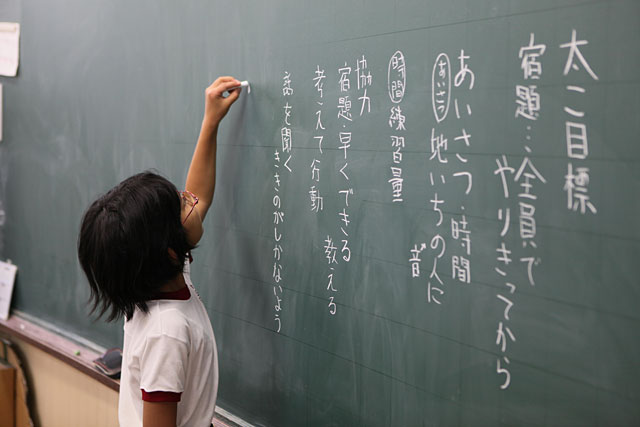 太こ目標
宿題…全員で
やりきってから
あいさつ・時間
あいさつ 地いちの人に
音
時間 練習量
協力
宿題・早くできる
教える
考えて行動
話を聞く
ききのがしがないよう